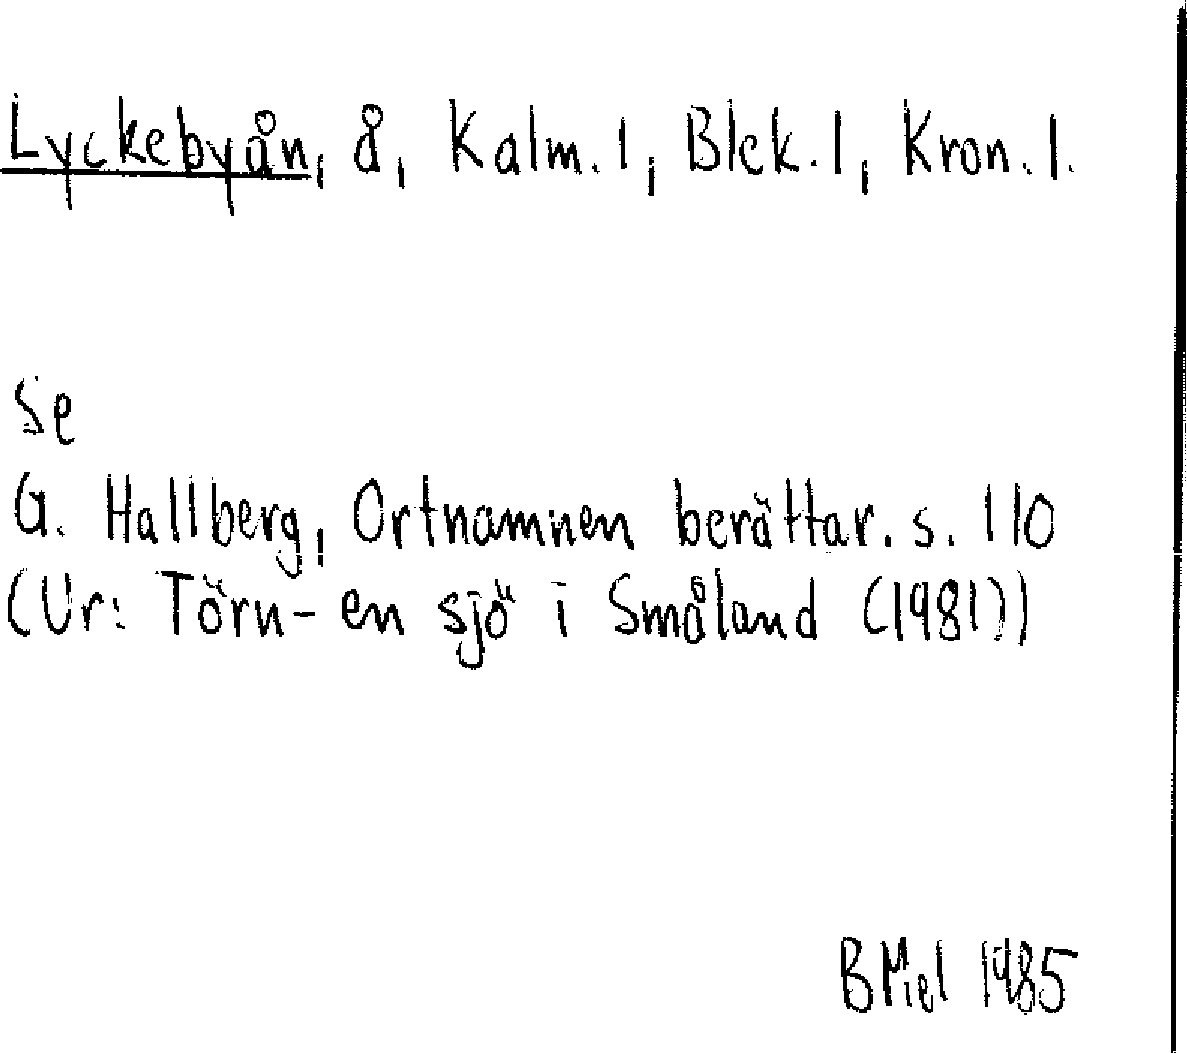 Lyckebyån, å, Kalm. l, Blek. l, Kron. l.
Se
G. Hallberg, Ortnamnen berättar. s. 110
(Ur: Törn - en sjö i Småland (1981))
BMel 1985